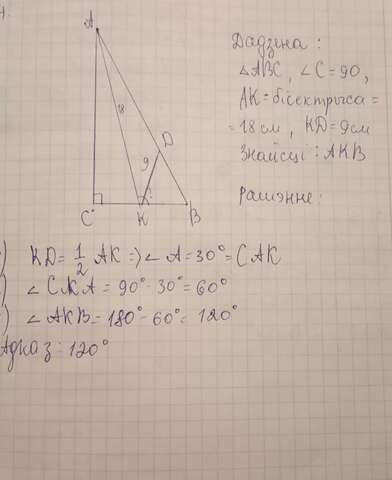 A
18
D
9
C
K
B
Дадзена:
∠ABC, ∠C=90,
AK=бісектрыса=
=18см, KD=9см
Знайсці: AKB
Рашэнне:
) KD=1/2 AK => ∠A=30°=CAK
) ∠CKA=90°-30°=60°
) ∠AKB=180°-60°=120°
Адказ: 120°